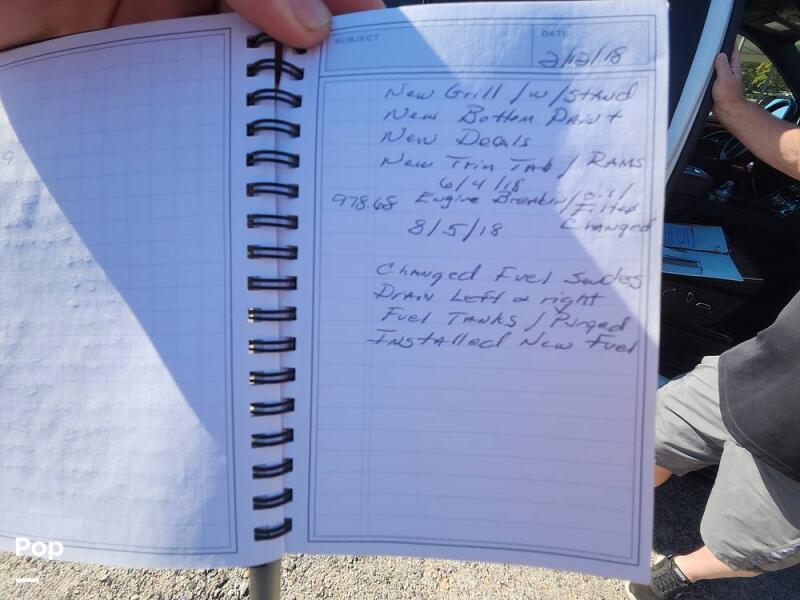 SUBJECT
DATE
2/12/18
New Grill / w/stand
New Bottom Paint
New Decals
New Trim Tab / RAMS
6/4/18
978.68 Engine Breakin / oil /
Filter
Changed
8/5/18
Changed Fuel
Drain Left & right
Fuel Tanks / Purged
Installed New Fuel
Pop